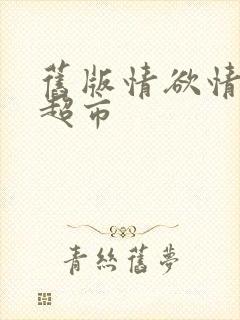 舊版情欲情
超市
青絲舊夢